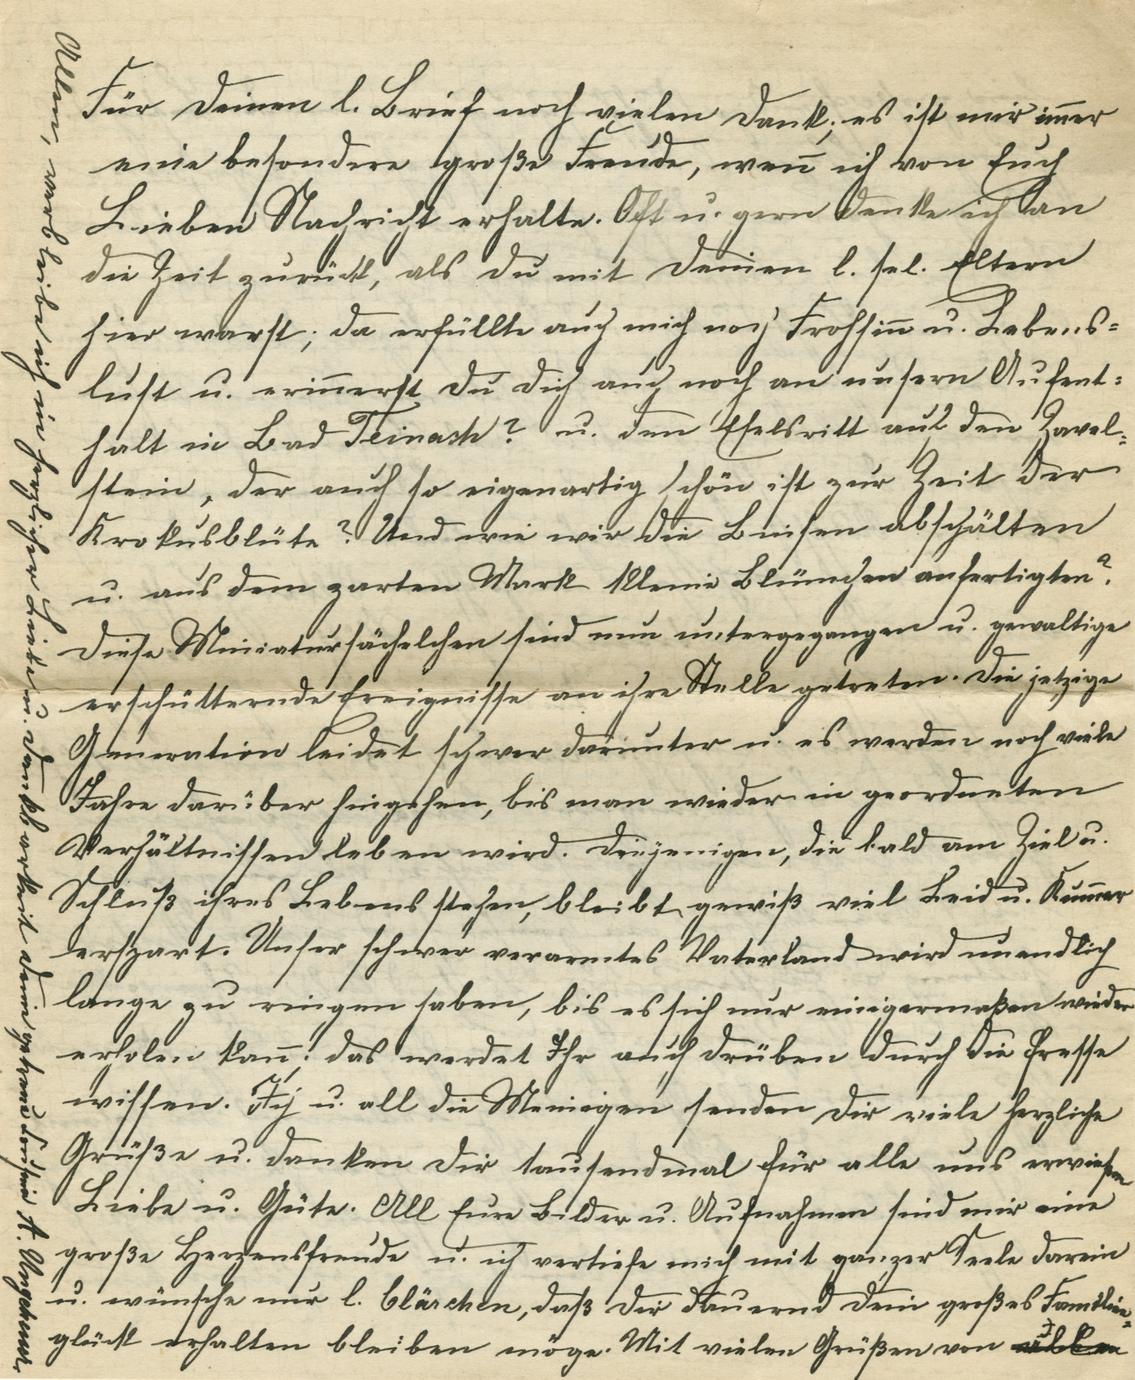 Für Deinen l. Brief noch vielen Dank; es ist mir immer
eine besondere große Freude, wenn ich von Euch
Lieben Nachricht erhalte. Oft u. gern denke ich an
die Zeit zurück, als Du mit Deinen l. sel. Eltern
hier warst; da erfüllte auch mich noch Frohsinn u. Lebens=
lust u. erinnerst Du Dich auch noch an unsern Aufent=
halt in Bad Teinach? u. den Eselsritt auf den Zavel=
stein, der auch so eigenartig schön ist zur Zeit der
Krokusblüte? Und wie wir die Binsen abschälten
u. aus dem zarten Mark kleine Blümchen anfertigten?
Diese Miniatursächelchen sind nun untergegangen u. gewaltige
erschütternde Ereignisse an ihre Stelle getreten. Die jetzige
Generation leidet schwer darunter u. es werden noch viele
Jahre darüber hingehen, bis man wieder in geordneten
Verhältnissen leben wird. Diejenigen, die bald am Ziel u.
Schluß ihres Lebens stehen, bleibt gewiß viel Leid u. Kummer
erspart. Unser schwer verarmtes Vaterland wird unendlich
lange zu ringen haben, bis es sich nur einigermaßen wieder
erholen kann; das werdet Ihr auch drüben durch die Presse
wissen. Ich u. all die Meinigen senden Dir viele herzliche
Grüße u. danken Dir tausendmal für alle uns erwiesene
Liebe u. Güte. All Eure Bilder u. Aufnahmen sind mir eine
große Herzensfreude u. ich vertiefe mich mit ganzer Seele darein
u. wünsche nur l. Clärchen, daß Dir dauernd Dein großes Familien=
glück erhalten bleiben möge. Mit vielen Grüßen von
Allen, verbleibe ich in herzlicher Liebe u. Dankbarkeit Deine